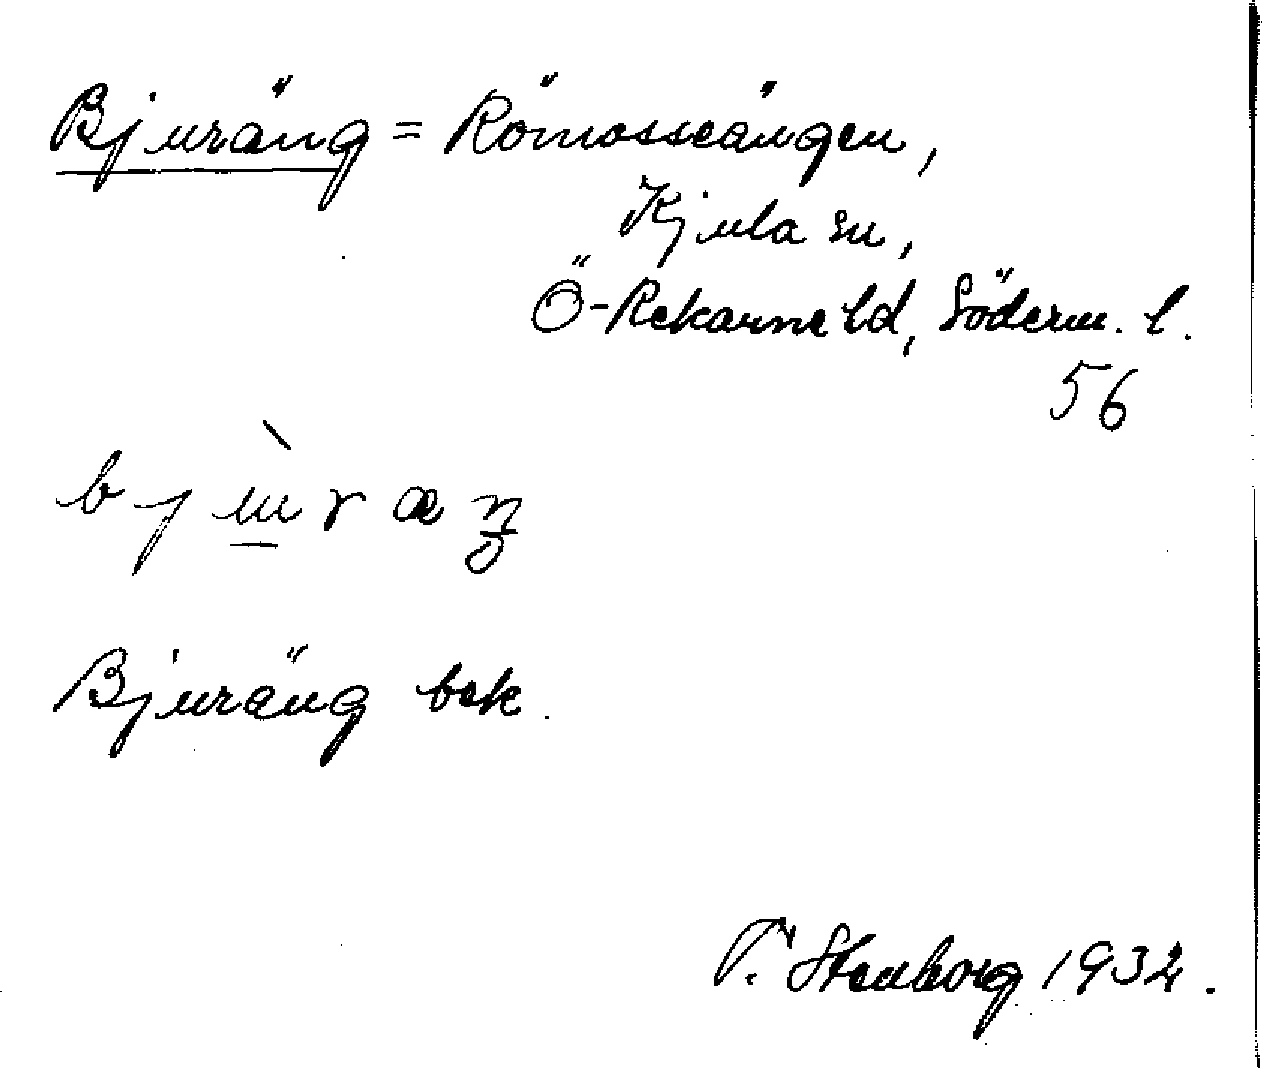 Bjuräng = Römosseängen,
Kjula sn,
Ö-Rekarne hd, Söderm. l.
56
Bjuräng bek.
T. Stenborg 1932.